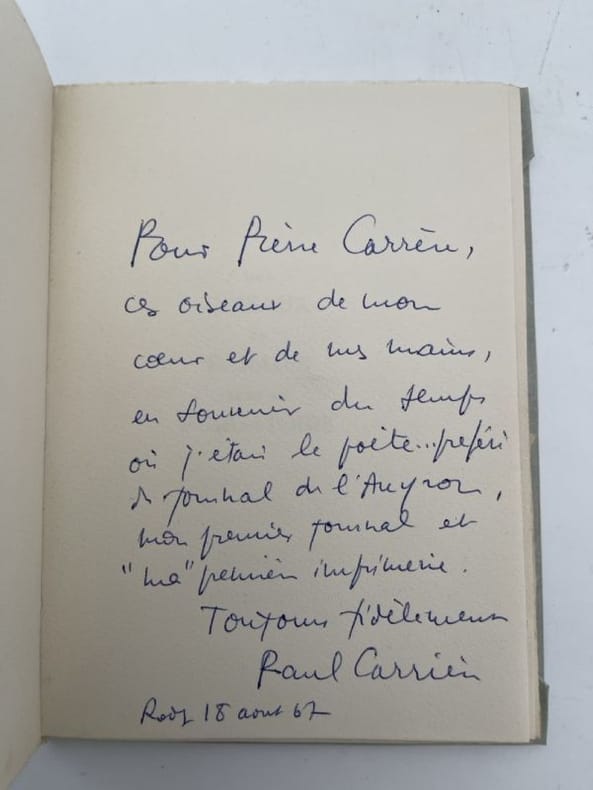 Pour Pierre Carrère,
ces oiseaux de mon
cœur et de mes mains,
en souvenir du temps
où j'étais le poète... préféré
du Journal de l'Aveyron,
mon premier journal et
"ma" première imprimerie.
Toujours fidèlement
Paul Carrière
Rodez 18 août 67